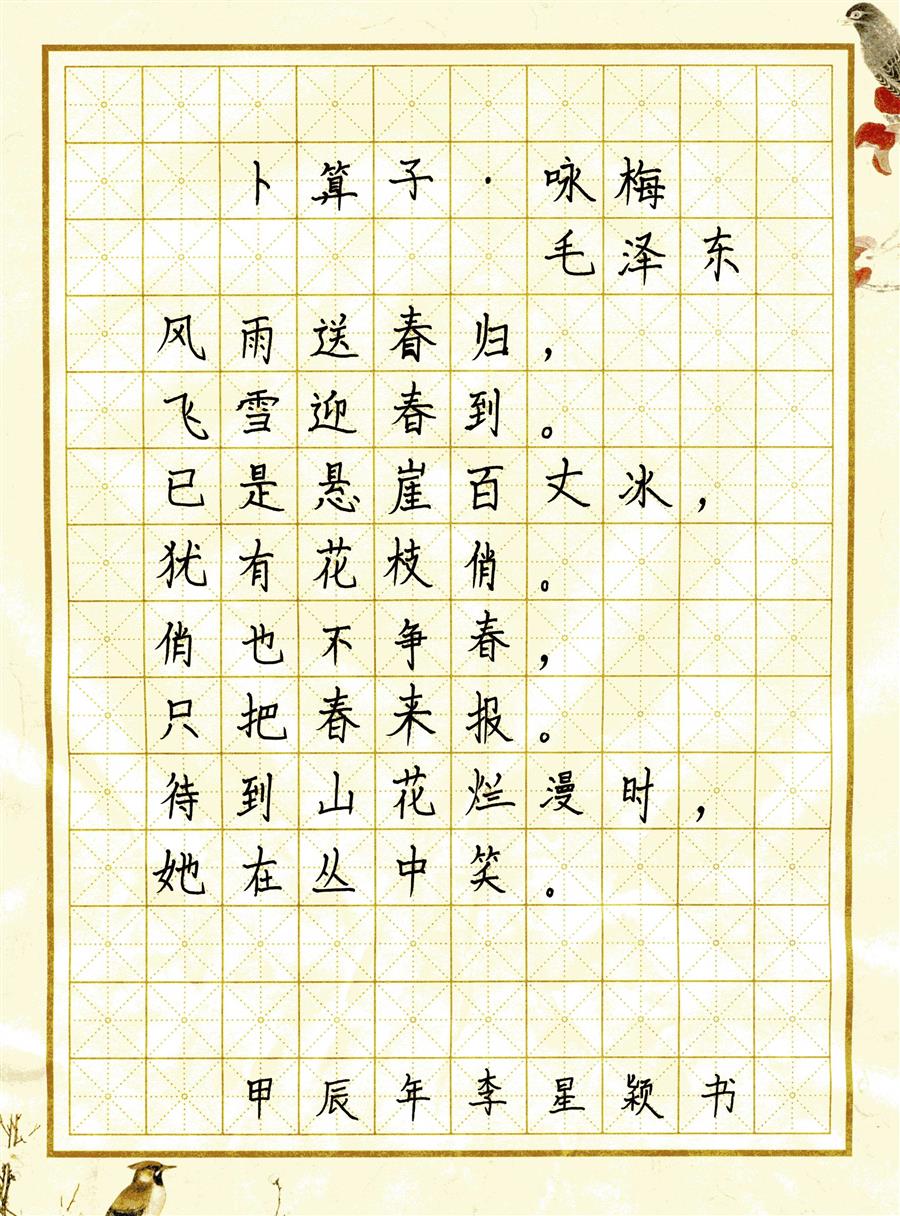 卜算子·咏梅
毛泽东
风雨送春归，
飞雪迎春到。
已是悬崖百丈冰，
犹有花枝俏。
俏也不争春，
只把春来报。
待到山花烂漫时，
她在丛中笑。
甲辰年李星颖书